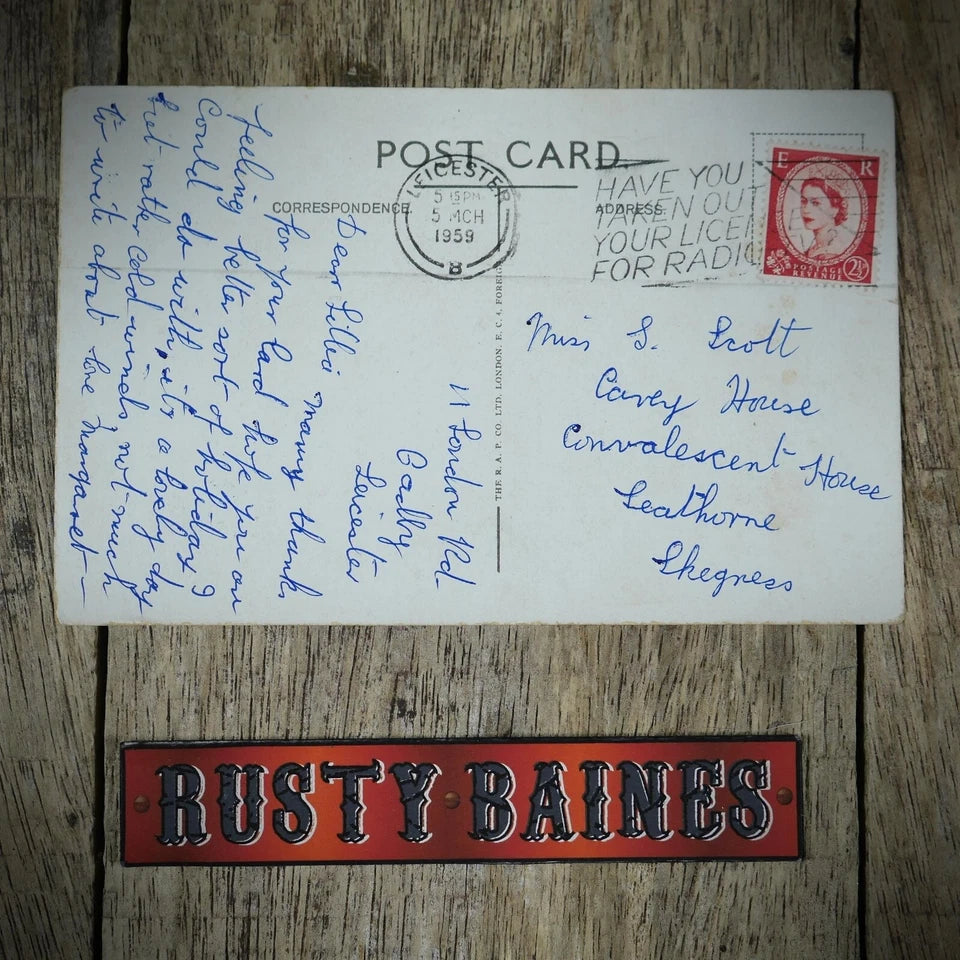 POST CARD
CORRESPONDENCE.
ADDRESS.
LEICESTER
5 15 PM
5 MCH
1959
B
HAVE YOU
TAKEN OUT
YOUR LICEN
FOR RADIO
E R
POSTAGE
REVENUE
2½
THE R. A. P. CO. LTD. LONDON. E. C. 4. FOREIG
11 London Rd
Leicester
Dear Lillie Many thanks
for your Card hope you are
feeling better sort of holiday I
Could do with, its a lovely day
but rather cold winds, not much
to write about love Margaret
Miss S. Scott
Carey House
Convalescent House
Seathorne
Skegness
RUSTY BAINES